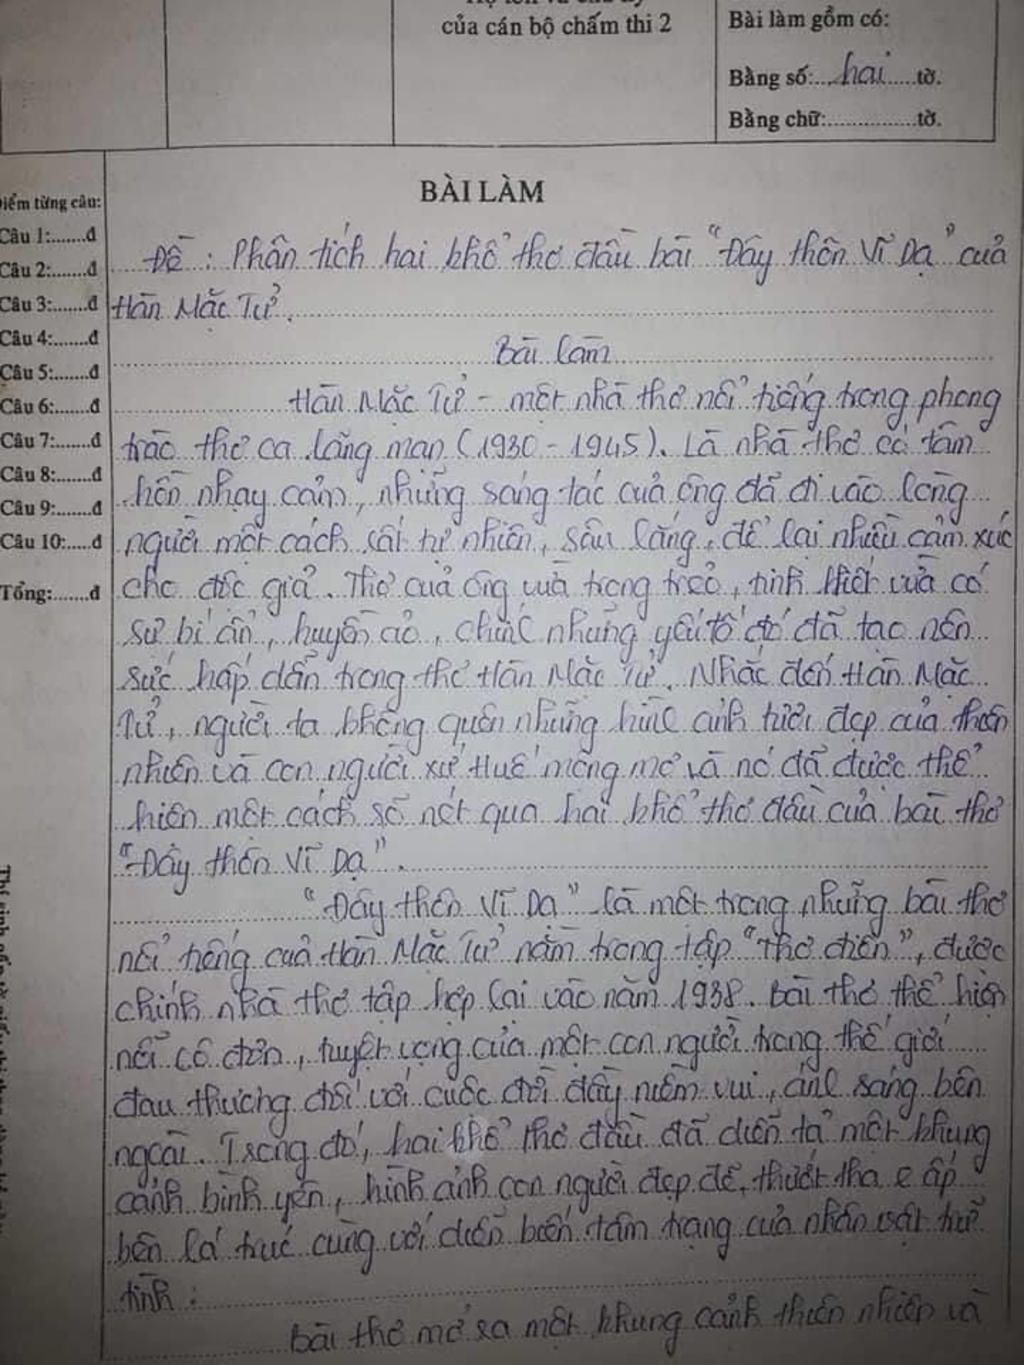 của cán bộ chấm thi 2
Bài làm gồm có:
Bằng số:....hai....tờ.
Bằng chữ:..............tờ.
BÀI LÀM
Điểm từng câu:
Câu 1:.......đ
Câu 2:.......đ
Câu 3:.......đ
Câu 4:.......đ
Câu 5:.......đ
Câu 6:.......đ
Câu 7:.......đ
Câu 8:.......đ
Câu 9:.......đ
Câu 10:.....đ
Tổng:......đ
Đề : Phân tích hai khổ thơ đầu bài "Đây thôn Vĩ Dạ" của
Hàn Mặc Tử.
Bài làm
Hàn Mặc Tử - một nhà thơ nổi tiếng trong phong
trào thơ ca lãng mạn (1930 - 1945). Là nhà thơ có tâm
hồn nhạy cảm, những sáng tác của ông đã đi vào lòng
người một cách rất tự nhiên, sâu lắng, để lại nhiều cảm xúc
cho độc giả. Thơ của ông vừa trong trẻo, tinh khiết vừa có
sự bí ẩn, huyền ảo, chính những yếu tố đó đã tạo nên
sức hấp dẫn trong thơ Hàn Mặc Tử. Nhắc đến Hàn Mặc
Tử, người ta không quên những hình ảnh tươi đẹp của thiên
nhiên và con người xứ Huế mộng mơ và nó đã được thể
hiện một cách rõ nét qua hai khổ thơ đầu của bài thơ
"Đây thôn Vĩ Dạ".
"Đây thôn Vĩ Dạ" là một trong những bài thơ
nổi tiếng của Hàn Mặc Tử nằm trong tập "Thơ điên", được
chính nhà thơ tập hợp lại vào năm 1938. Bài thơ thể hiện
nỗi cô đơn, tuyệt vọng của một con người trong thế giới
đau thương đối với cuộc đời đầy niềm vui, ánh sáng bên
ngoài. Trong đó, hai khổ thơ đầu đã diễn tả một khung
cảnh bình yên, hình ảnh con người đẹp đẽ, thướt tha e ấp
bên lá trúc cùng với diễn biến tâm trạng của nhân vật trữ
tình :
Bài thơ mở ra một khung cảnh thiên nhiên và